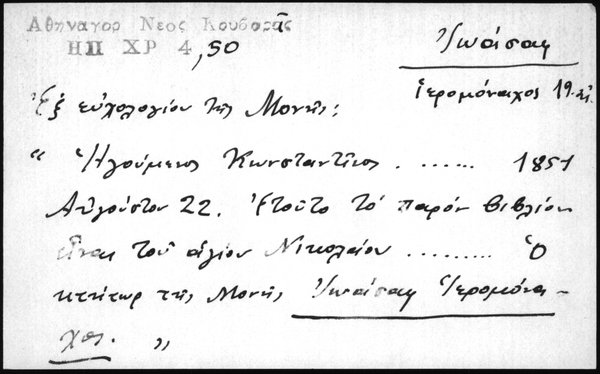 Ἀθηναγορ Νεος Κουβαρᾶς
ΗΠ ΧΡ 4,50
Ἰωάσαφ
Ἱερομόναχος 19. αἰ.
Ἐξ εὐχολογίου τῆς Μονῆς:
" Ἡγούμενος Κωνσταντῖνος ........ 1851
Αὐγούστου 22. Ἐτοῦτο τό παρόν βιβλίον
εἶναι τοῦ ἁγίου Νικολαίου ......... Ὁ
κτήτωρ τῆς Μονῆς Ἰωάσαφ Ἱερομόνα-
χος. "